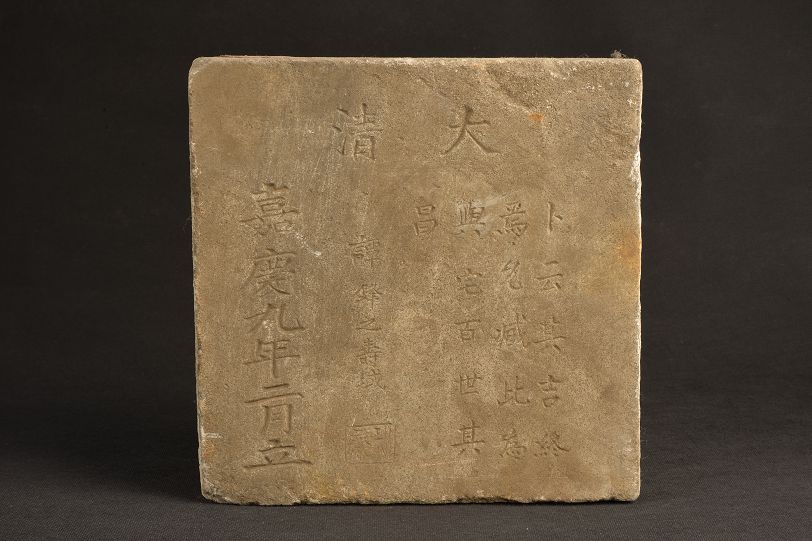 大清
卜云其吉終
焉允臧比為
與宅百世其
昌
之壽坟
嘉慶九年二月立